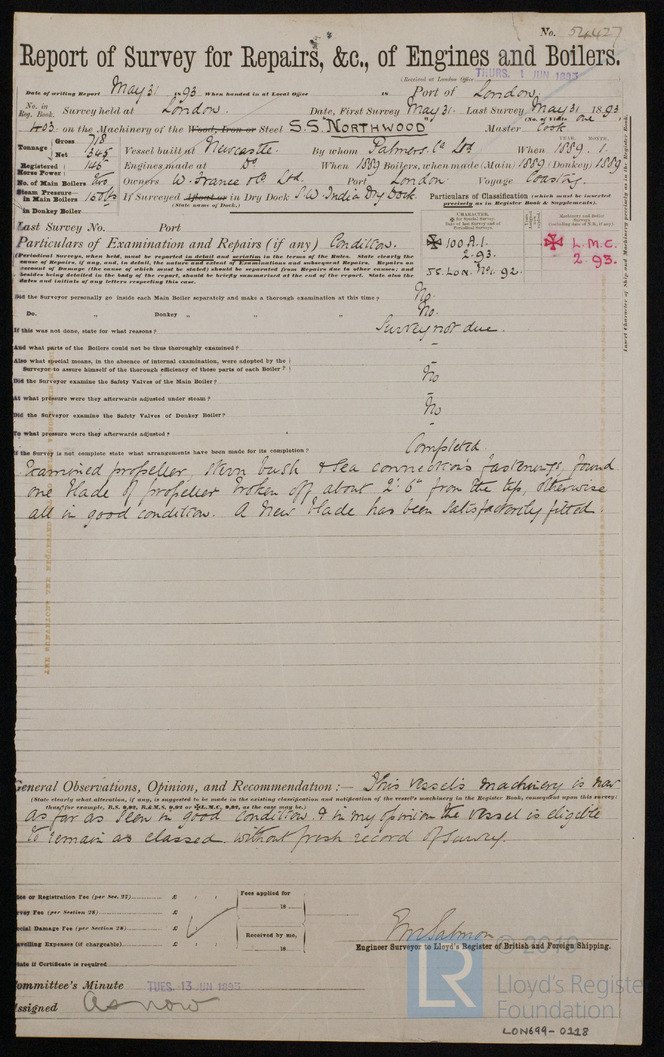 No. 54427
Report of Survey for Repairs, &c., of Engines and Boilers.
(Received at London Office THURS. 1 JUN 1893
Date of writing Report May 31 1893 When handed in at Local Office 18 Port of London.
No. in Reg. Book. Survey held at London. Date, First Survey May 31. Last Survey May 31 1893
(No. of Visits one)
403 on the Machinery of the Wood, Iron or Steel S.S. NORTHWOOD Master Cook
Tonnage Gross 718 Net 345 Vessel built at Newcastle. By whom Palmers Co Ltd When YEAR. 1889. MONTH. 1.
Registered Horse Power 145 Engines made at Do When 1889 Boilers, when made (Main) 1889 (Donkey) 1889
No. of Main Boilers two Owners W. France & Co. Ltd. Port London Voyage Coasting.
Steam Pressure in Main Boilers 150 lbs If Surveyed Afloat or in Dry Dock S.W. India Dry Dock.
(State name of Dock.)
in Donkey Boiler
Particulars of Classification (which must be inserted precisely as in Register Book & Supplements).
Last Survey No. Port
CHARACTER.
Machinery and Boiler Surveys
Particulars of Examination and Repairs (if any) Condition.
✠ 100 A.1.
2.93.
SS. Lon. No. 1. 92.
✠ L.M.C.
2.93.
(Periodical Surveys, when held, must be reported in detail and seriatim in the terms of the Rules. State clearly the
cause of Repairs, if any, and, in detail, the nature and extent of Examinations and subsequent Repairs. Repairs on
account of Damage (the cause of which must be stated) should be separated from Repairs due to other causes; and
besides being detailed in the body of the report, should be briefly summarised at the end of the report. State also the
dates and initials of any letters respecting this case.
Did the Surveyor personally go inside each Main Boiler separately and make a thorough examination at this time? No.
Do. " Donkey " " " No.
If this was not done, state for what reasons? Survey not due.
And what parts of the Boilers could not be thus thoroughly examined? –
Also what special means, in the absence of internal examination, were adopted by the
Surveyor to assure himself of the thorough efficiency of those parts of each Boiler? –
Did the Surveyor examine the Safety Valves of the Main Boiler? No
At what pressure were they afterwards adjusted under steam? –
Did the Surveyor examine the Safety Valves of Donkey Boiler? No
To what pressure were they afterwards adjusted? –
If the Survey is not complete state what arrangements have been made for its completion? Completed.
Examined propeller, stern bush & sea connections fastenings, found
one blade of propeller broken off about 2' 6" from the tip, otherwise
all in good condition. A new blade has been satisfactorily fitted.
General Observations, Opinion, and Recommendation :— This vessel's machinery is now
(State clearly what alteration, if any, is suggested to be made in the existing classification and notification of the vessel's machinery in the Register Book, consequent upon this survey;
as far as seen in good condition & in my opinion the vessel is eligible
to remain as classed without fresh record of survey.
Registration Fee (per Sec. 27) £ : :
Survey Fee (per Section 28) £
Special Damage Fee (per Section 28) £
Travelling Expenses (if chargeable) £ : :
Fees applied for
18
Received by me,
18
Engineer Surveyor to Lloyd's Register of British and Foreign Shipping.
State if Certificate is required
Committee's Minute TUES. 13 JUN 1893
Assigned As now
LR
Lloyd's Register
Foundation
LON699-0118